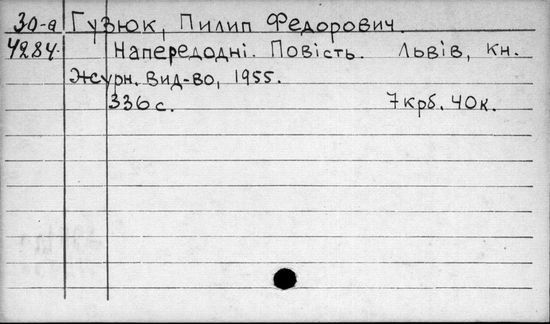 30-а Гузюк, Пилип Федорович.
4284. Напередодні. Повість. Львів, кн.
журн. вид-во, 1955.
336 с. 7 крб. 40 к.